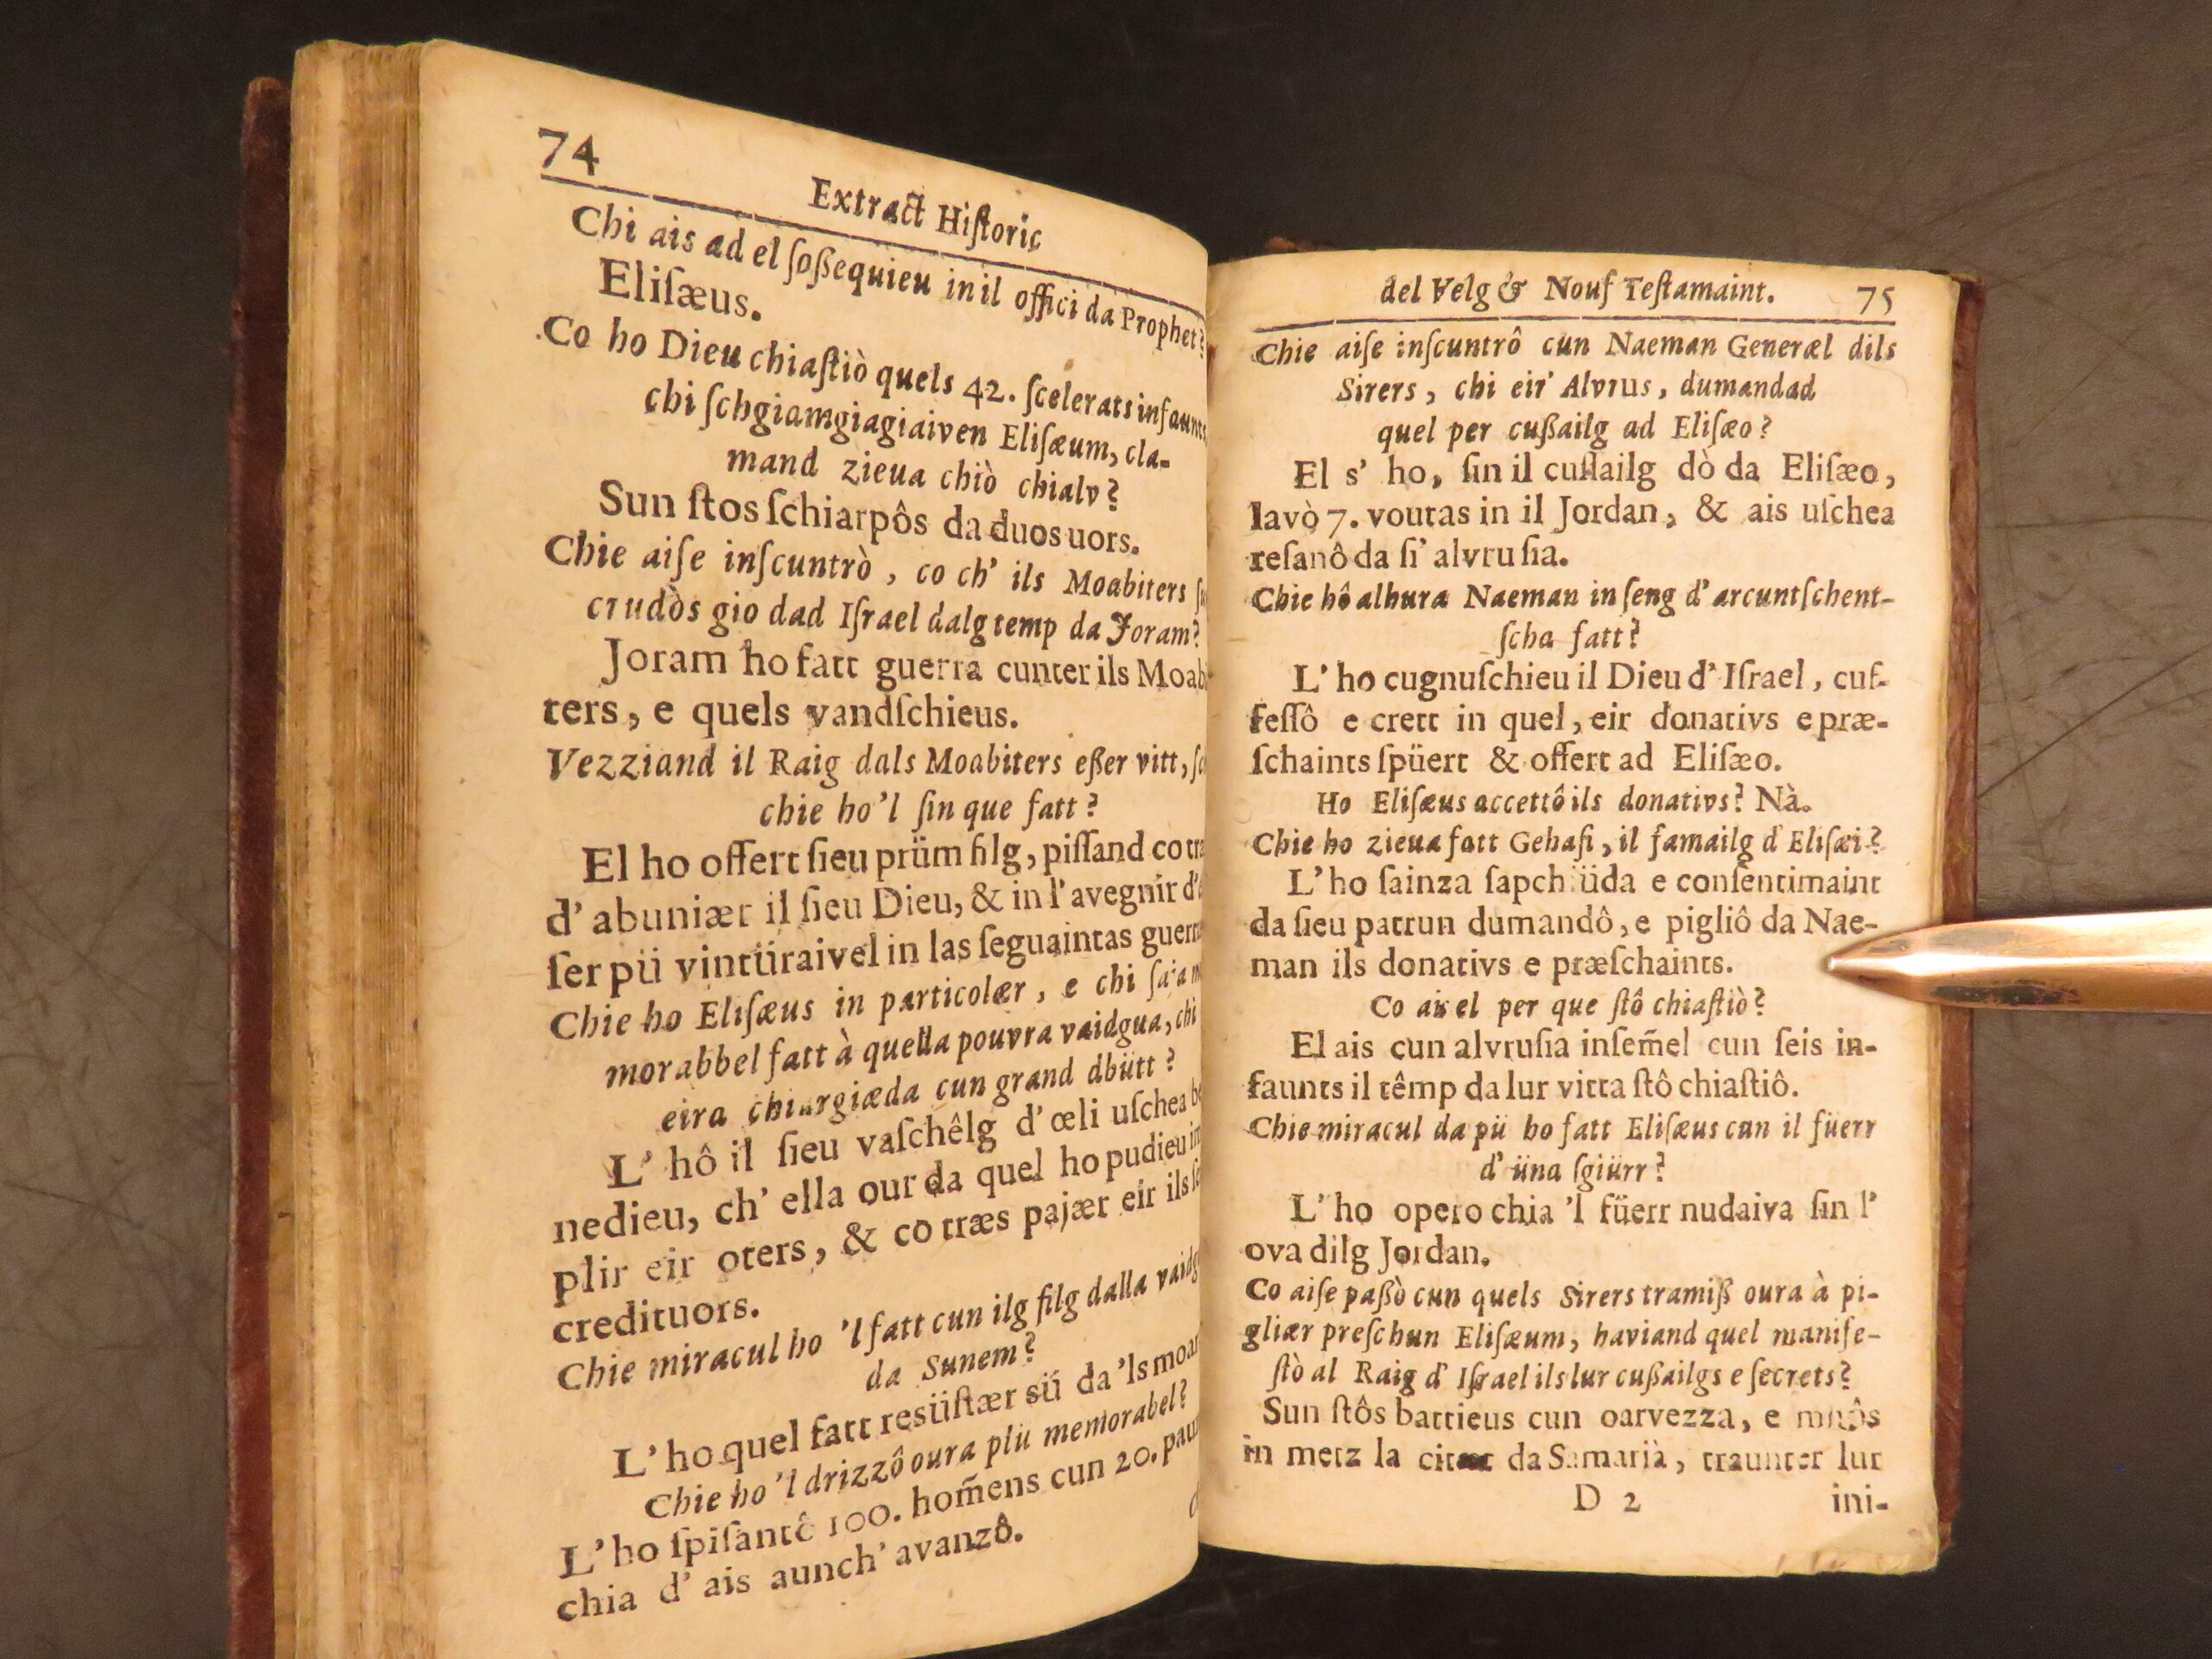 74
Extract Hiſtoric
Chi ais ad el ſoßequieu in il offici da Prophet?
Eliſæus.
Co ho Dieu chiaſtiò quels 42. ſcelerats infaunts
chi ſchgiamgiagiaiven Eliſæum, cla-
mand zieua chiò chialv?
Sun ſtos ſchiarpôs da duos uors.
Chie aiſe inſcuntrò, co ch' ils Moabiters
crudòs gio dad Iſrael dalg temp da Joram?
Joram ho fatt guerra cunter ils Moabi
ters, e quels vandſchieus.
Vezziand il Raig dals Moabiters eßer vitt,
chie ho 'l ſin que fatt?
El ho offert ſieu prüm filg, piſſand co
d' abuniær il ſieu Dieu, & in l' avegnir
ſer pü vintüraivel in las ſeguaintas
Chie ho Eliſæus in particolær, e chi
morabbel fatt à quella pouvra vaidgua, chi
eira chiargiæda cun grand dbütt?
L' hô il ſieu vaſchêlg d' œli uſchea
nedieu, ch' ella our da quel ho pudieu
plir eir oters, & co træs pajær eir ils
credituors.
Chie miracul ho 'l fatt cun ilg filg dalla
da Sunem?
L' ho quel fatt resüſtær sü da 'ls
Chie ho 'l drizzô oura plü memorabel?
L' ho ſpiſantô 100. hom̃ens cun 20.
chia d' ais aunch' avanzô.
del Velg & Nouf Teſtamaint. 75
Chie aiſe inſcuntrô cun Naeman Generæl dils
Sirers, chi eir' Alvrus, dumandad
quel per cußailg ad Eliſæo?
El s' ho, ſin il cuſſailg dò da Eliſæo,
lavò 7. voutas in il Jordan, & ais uſchea
reſanô da ſi' alvruſia.
Chie hô alhura Naeman in ſeng d' arcuntſchent-
ſcha fatt?
L' ho cugnuſchieu il Dieu d' Iſrael, cuf-
feſſô e crett in quel, eir donativs e præ-
ſchaints ſpüert & offert ad Eliſæo.
Ho Eliſæus accettô ils donativs? Nà.
Chie ho zieua fatt Gehaſi, il famailg d' Eliſæi?
L' ho ſainza ſapchüda e conſentimaint
da ſieu patrun dumandô, e pigliô da Nae-
man ils donativs e præſchaints.
Co ais el per que ſtô chiaſtiò?
El ais cun alvruſia inſem̃el cun ſeis in-
faunts il têmp da lur vitta ſtô chiaſtiô.
Chie miracul da pü ho fatt Eliſæus cun il füerr
d' üna ſgiürr?
L' ho opero chia 'l füerr nudaiva ſin l'
ova dilg Jordan.
Co aiſe paßò cun quels Sirers tramiß oura à pi-
gliær preſchun Eliſæum, haviand quel manife-
ſtò al Raig d' Iſrael ils lur cußailgs e ſecrets?
Sun ſtôs battieus cun oarvezza, e mnôs
in metz la citæt da Samarià, traunter lur
D 2 ini-